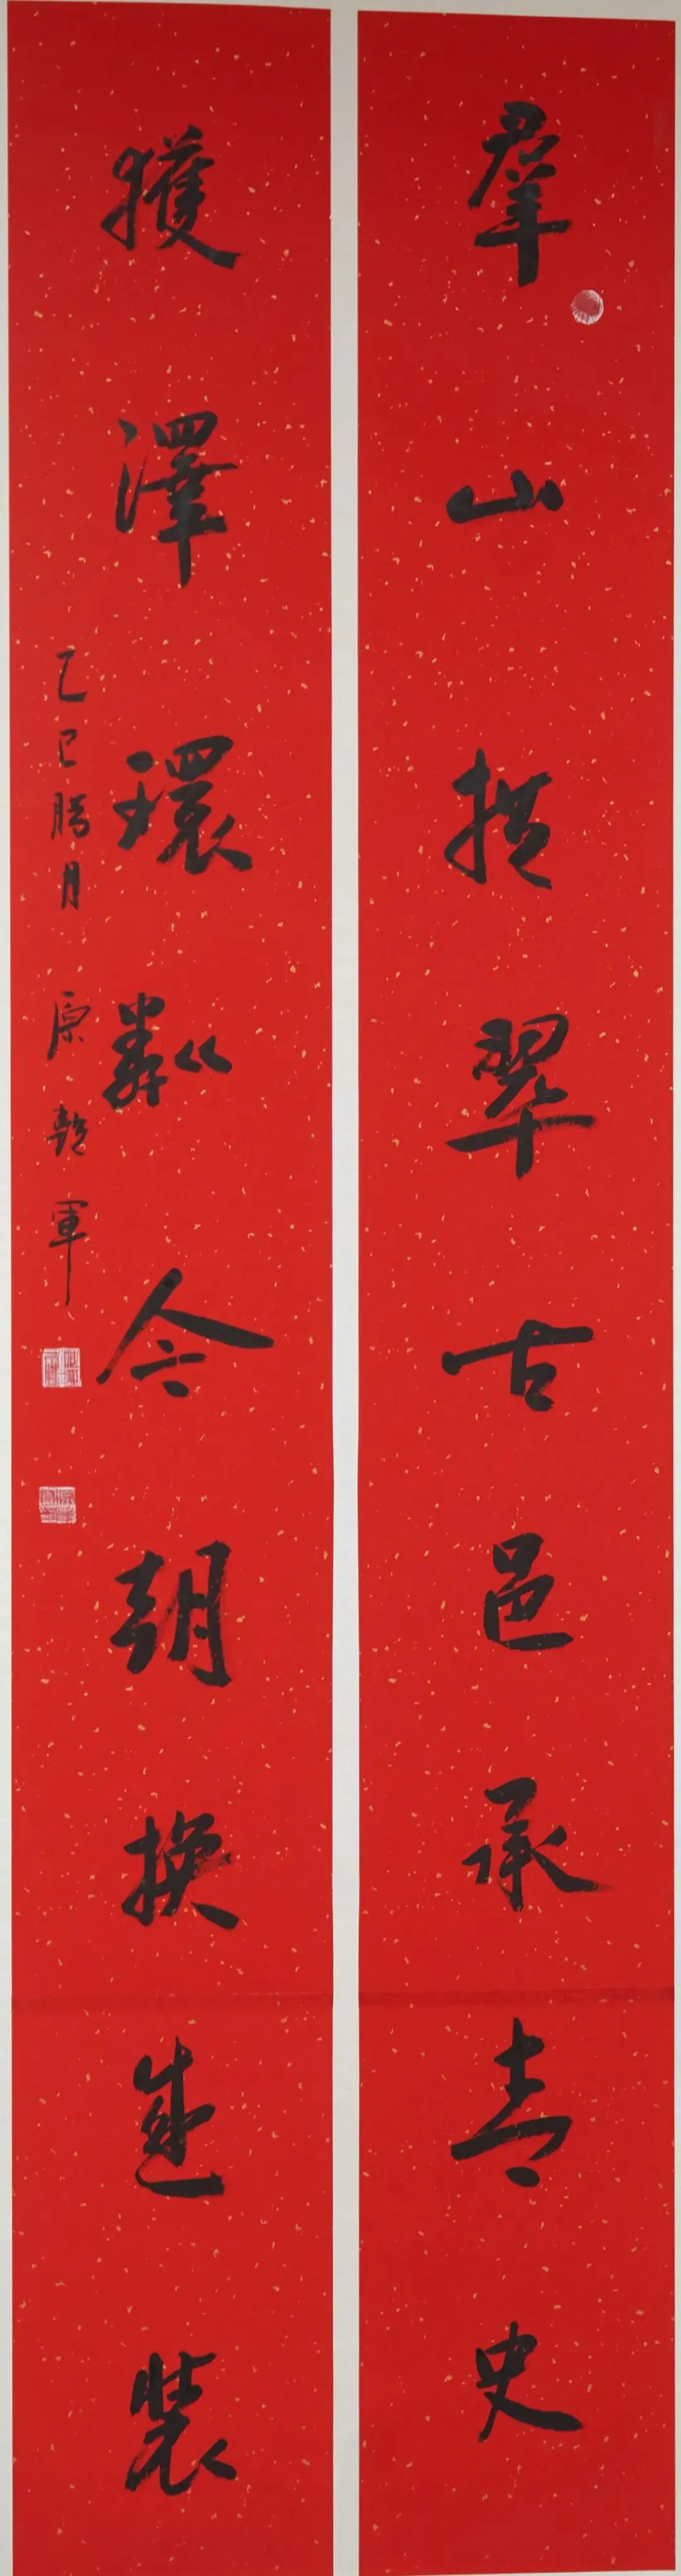 羣山拱翠古邑承青史
獲澤環粼今朝換盛裝
乙巳臘月 原乾軍